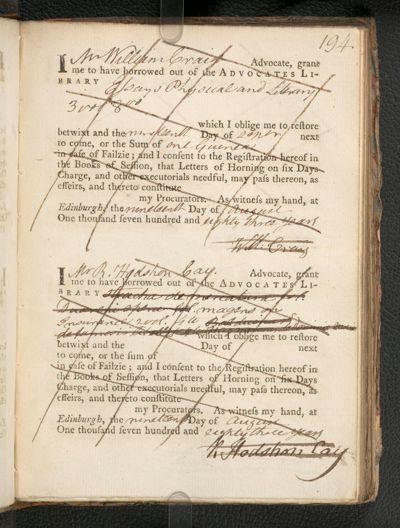 194
I Mr William Craig Advocate, grant
me to have borrowed out of the ADVOCATES LI-
BRARY Essays Physical and Literary
3 vols 8vo
which I oblige me to reſtore
betwixt and the nineteenth Day of next
to come, or the Sum of one Guinea
in caſe of Failzie; and I conſent to the Regiſtration hereof in
the Books of Seſſion, that Letters of Horning on ſix Days
Charge, and other executorials needful, may paſs thereon, as
effeirs, and thereto conſtitute
my Procurators. As witneſs my hand, at
Edinburgh, the nineteenth Day of August
One thouſand ſeven hundred and eighty three years
Will: Craig
I Mr R. Hodshon Cay. Advocate, grant
me to have borrowed out of the ADVOCATES LI-
BRARY
opera magens on
Insurance 2 vol. 4to
which I oblige me to reſtore
betwixt and the Day of next
to come, or the ſum of
in caſe of Failzie; and I conſent to the Regiſtration hereof in
the Books of Seſſion, that Letters of Horning on ſix Days
Charge, and other executorials needful, may paſs thereon, as
effeirs, and thereto conſtitute
my Procurators. As witneſs my hand, at
Edinburgh, the nineteenth Day of August
One thouſand ſeven hundred and eighty three years
R. Hodshon Cay